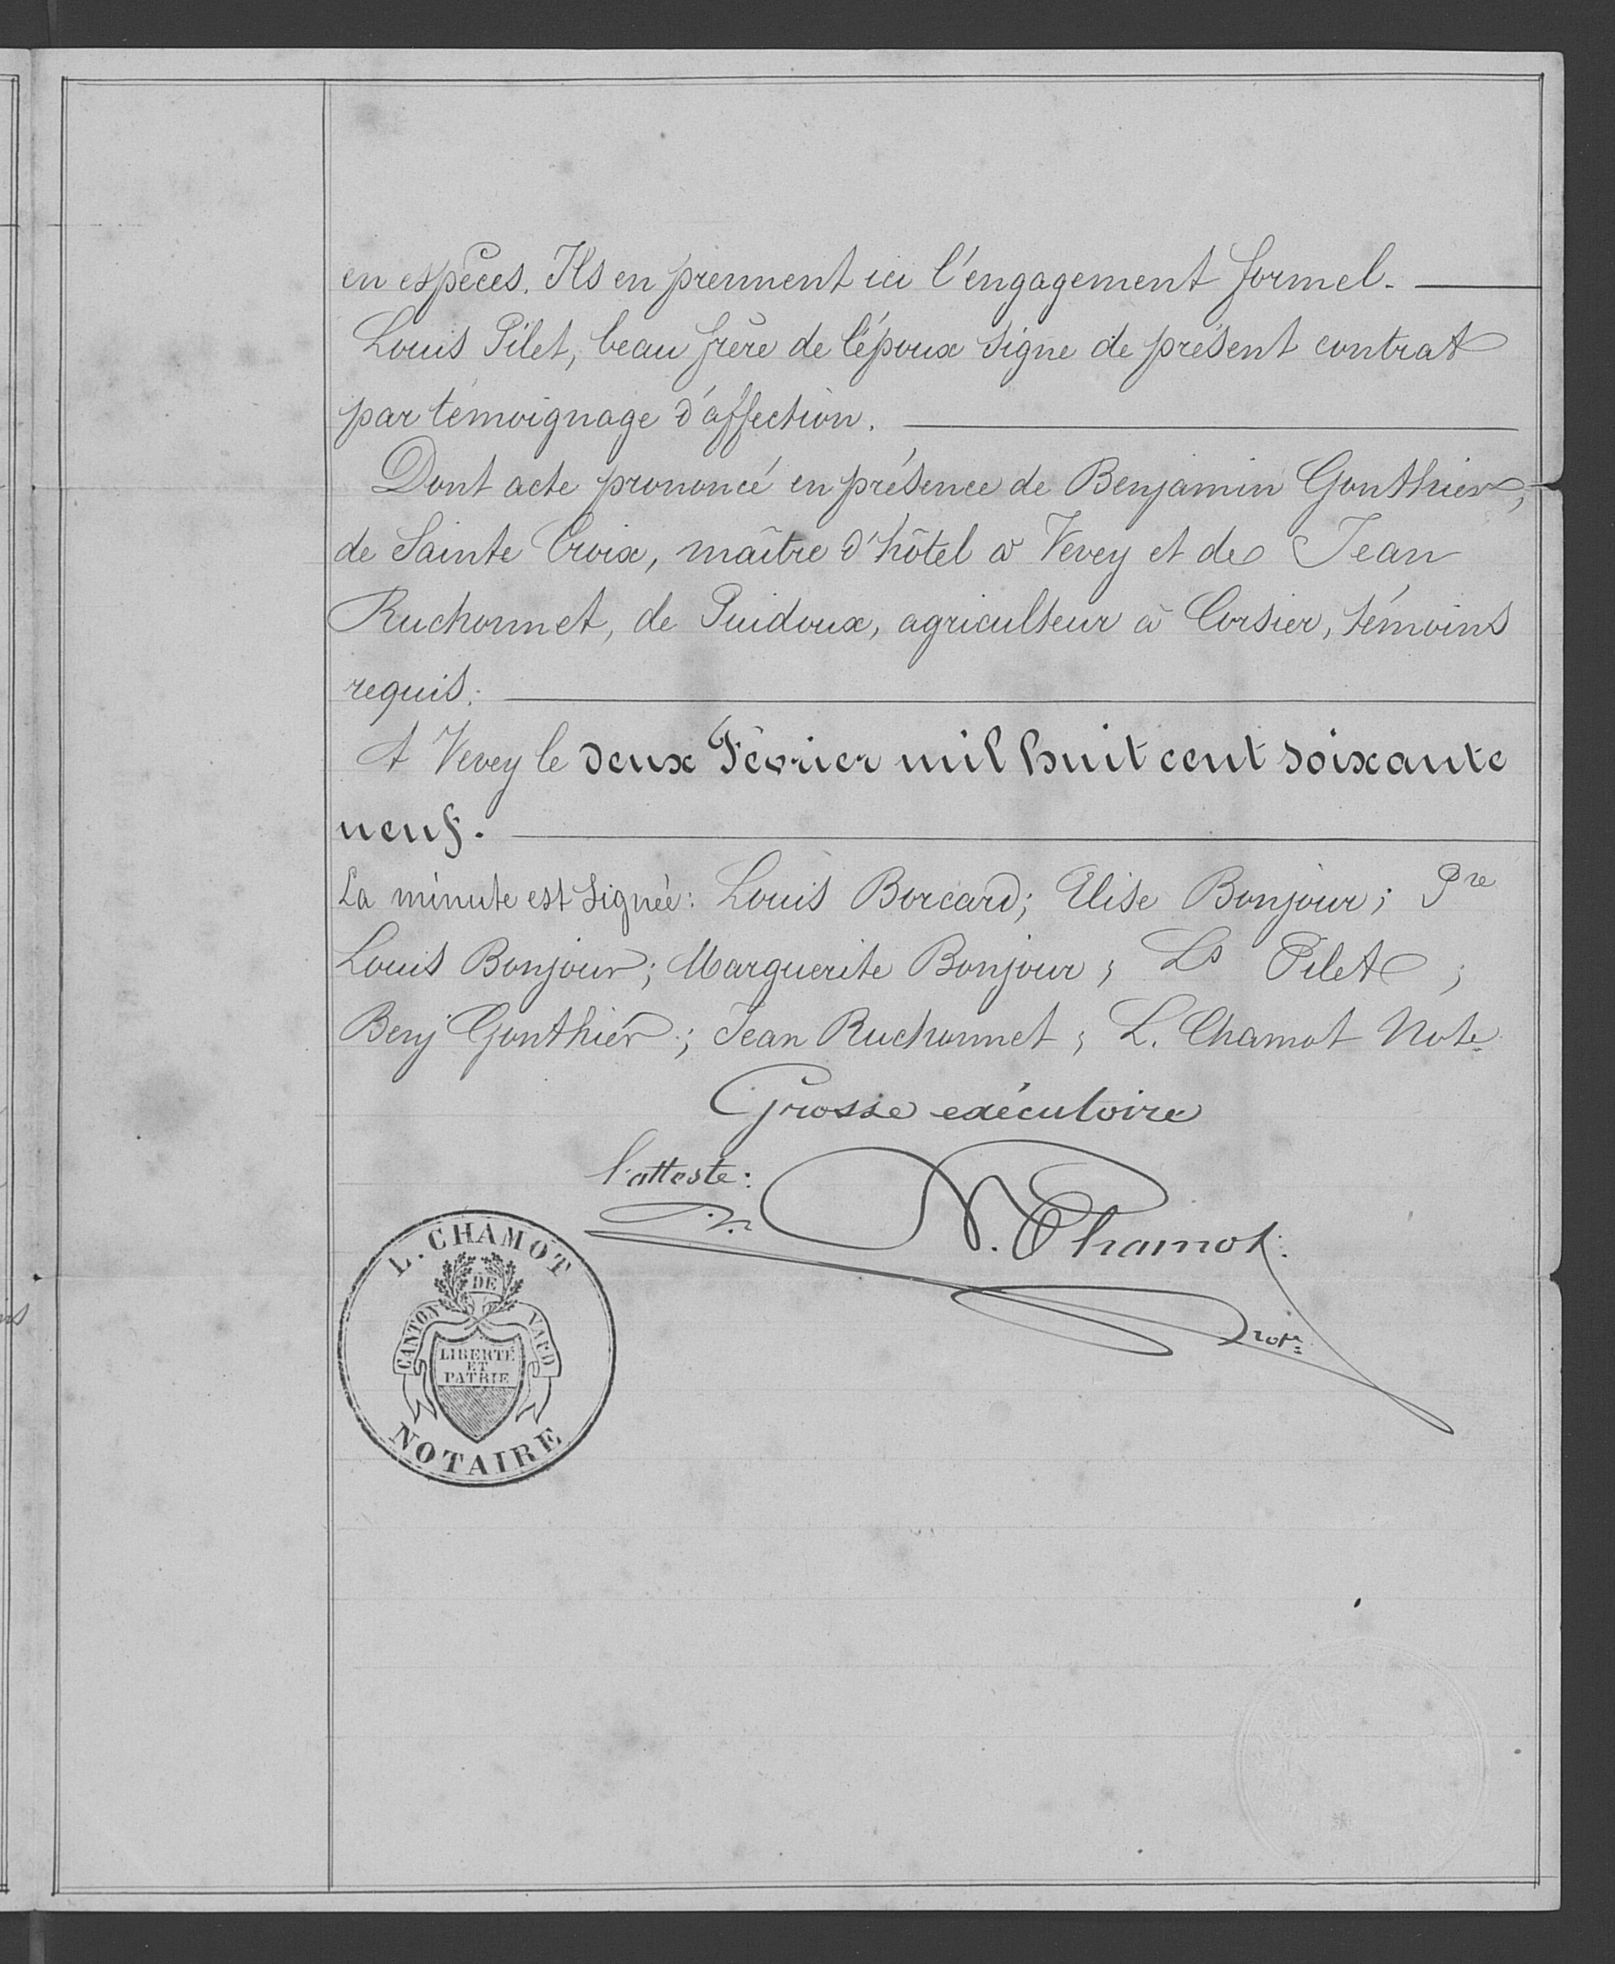 en espèces. Ils en prennent ici l'engagement formel.
Louis Pilet, beau frère de l'époux signe de présent contrat
par témoignage d'affection.
Dont acte prononcé en présence de Benjamin Gonthier,
de Sainte Croix, maître d'hôtel à Vevey et de Jean
Ruchonnet, de Puidoux, agriculteur à Corsier, témoins
requis.
A Vevey le deux Février mil huit cent soixante
neuf.
La minute est signée: Louis Borcard; Elise Bonjour; Pre
Louis Bonjour; Marguerite Bonjour; Ls Pilet;
Benj Gonthier; Jean Ruchonnet; L. Chamot Note
Grosse exécutoire
l'atteste:
Chamot
not.
L. CHAMOT
DE
CANTON VAUD
LIBERTÉ
ET
PATRIE
NOTAIRE